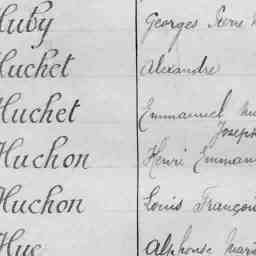 Huby Georges Pierre
Huchet Alexandre
Huchet Emmanuel
Joseph
Huchon Henri Emman
Huchon Louis François
Hue Alphonse Marie